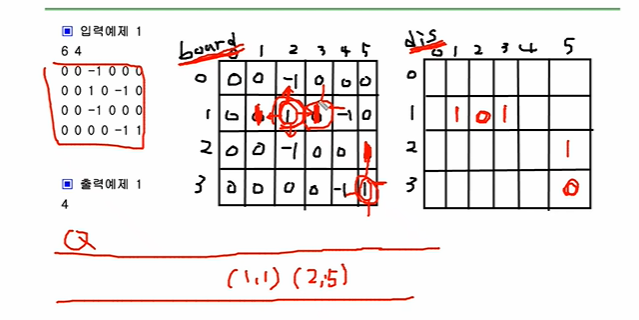 ▣ 입력예제 1
6 4
0 0 -1 0 0 0
0 0 1 0 -1 0
0 0 -1 0 0 0
0 0 0 0 -1 1
▣ 출력예제 1
4
board
0 1 2 3 4 5
0 0 0 -1 0 0 0
1 0 1 1 1 -1 0
2 0 0 -1 0 0 1
3 0 0 0 0 -1 1
dis
0 1 2 3 4 5
0
1 1 0 1
2 1
3 0
Q
(1,1) (2,5)